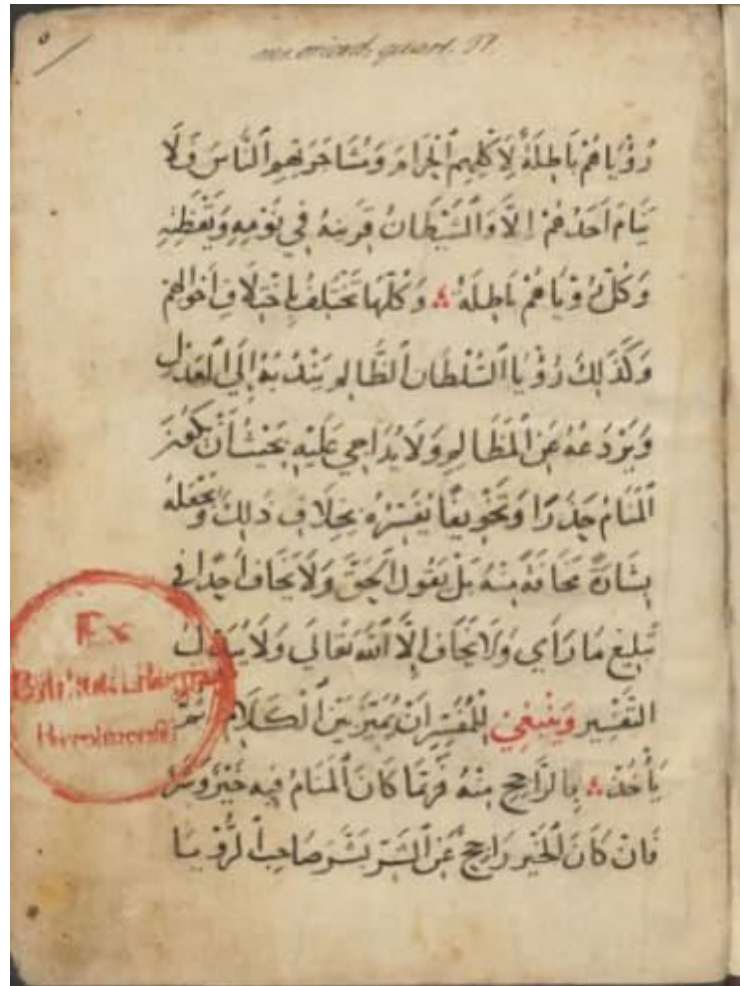 ms. orient. quart. 77.
رُؤْيَاهُمْ بَاطِلَةٌ لِاَكْلِهِمِ الْحَرَامَ وَمُشَاجَرَتِهِمِ النَّاسَ وَلَا
يَنَامَ اَحَدُهُمْ اِلَّا وَالشَّيْطَانُ قَرِينُهُ فِي نَوْمِهِ وَيَقْظَتِهِ
وَكُلُّ رُؤْيَاهُمْ بَاطِلَةٌ وَكُلُّهَا تَخْتَلِفُ بِاخْتِلَافِ اَحْوَالِهِمْ
وَكَذَلِكَ رُؤْيَا السُّلْطَانِ الظَّالِمِ يَنْدُبُهُ اِلَى الْعَدْلِ
وَيَرْدَعُهُ عَنِ الْمَظَالِمِ وَلَا يُدَاجِي عَلَيْهِ بِحَيْثُ اَنْ يَكُونَ
الْمَنَامُ حَذَرًا وَتَخْوِيفًا يُفَسِّرُهُ بِخِلَافِ ذَلِكَ وَيَجْعَلُهُ
بِشَارَةً مَخَافَةً مِنْهُ بَلْ يَقُولُ الْحَقَّ وَلَا يَخَافُ اَحَدًا فِي
تَبْلِيغِ مَا رَاَي وَلَا يَخَافُ اِلَّا اللّٰهَ تَعَالَي وَلَا يُبَدِّلُ
التَّفْسِيرِ وَيَنْبَغِي لِلْمُفَسِّرِ اَنْ يُمَيِّزَ بَيْنَ الْكَلَامِ ثُمَّ
يَأْخُذَ بِالرَّاجِحِ مِنْهُ فَرُبَّمَا كَانَ الْمَنَامُ فِيهِ خَيْرٌ وَشَرٌّ
فَاِنْ كَانَ الْخَيْرُ رَاجِحٌ عَنِ الشَّرِّ بَشَّرَ صَاحِبَ الرُّؤْيَا
Ex